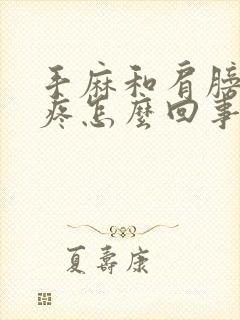 手麻和肩膀
疼怎麽回事
夏壽康